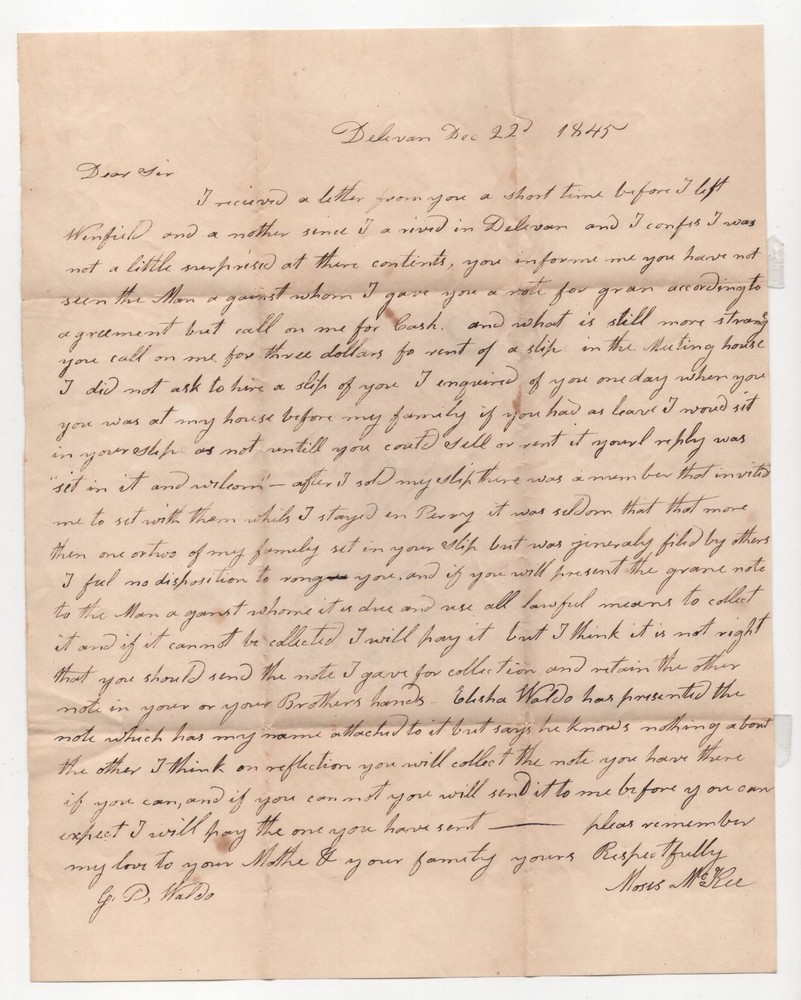 Delevan Dec 22d 1845
Dear Sir
I recieved a letter from you a short time before I left
Winfield and a nother since I a rived in Delevan and I confess I was
not a little surprised at there contents, you informe me you have not
seen the Man a gainst whom I gave you a note for gran according to
a greement but call on me for Cash. and what is still more strang
you call on me for three dollars fo rent of a slip in the Meeting house
I did not ask to hire a slip of you I enquired of you one day when you
you was at my house before my family if you had as leave I woud sit
in your slip as not untill you could sell or rent it yourl reply was
"set in it and welcom" — after I sold my slip there was a member that invited
me to set with them whils I stayed in Perry it was seldom that that more
then one or two of my family set in your slip but was jeneraly filed by others
I feel no disposition to rong you, and if you will present the grane note
to the Man a ganst whome it is due and use all lawful means to collect
it and if it cannot be collected I will pay it but I think it is not right
that you should send the note I gave for collection and retain the other
note in your or your Brothers hands. Elisha Waldo has presented the
note which has my name attached to it but says he knows nothing a bout
the other I think on reflection you will collect the note you have there
if you can, and if you can not you will send it to me before you can
expect I will pay the one you have sent — pleas remember
my love to your Mothe & your family yours Respectfully
Moses McKee
G. D. Waldo